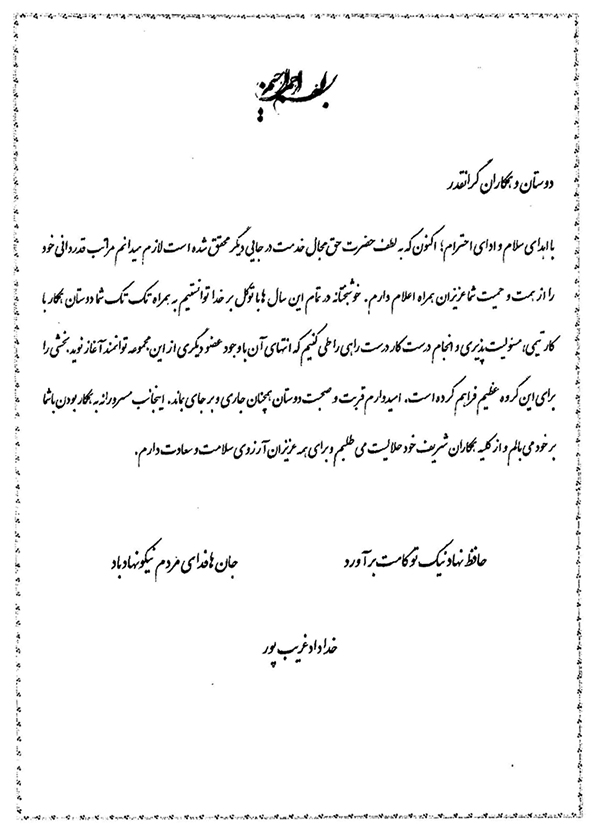 بسم الله الرحمن الرحیم
دوستان و همکاران گرانقدر
با اهدای سلام و ادای احترام؛ اکنون که به لطف حضرت حق مجال خدمت در جایی دیگر محقق شده است لازم میدانم مراتب قدردانی خود
را از همت و حمیت شما عزیزان همراه اعلام دارم. خوشبختانه در تمام این سال ها با توکل بر خدا توانستیم به همراه تک تک شما دوستان همکار با
کار تیمی؛ مسئولیت پذیری و انجام درست کار درست راهی را طی کنیم که انتهای آن با وجود عضو دیگری از این مجموعه توانمند آغاز نوید بخشی را
برای این گروه عظیم فراهم کرده است. امیدوارم قربت و صحبت دوستان همچنان جاری و بر جای بماند. اینجانب مسرورانه به همکار بودن با شما
بر خود می بالم و از کلیه همکاران شریف خود حلالیت می طلبم و برای همه عزیزان آرزوی سلامت و سعادت دارم.
حافظ نهاد نیک تو کامت بر آورد جان ها فدای مردم نیکو نهاد باد
خداداد غریب پور